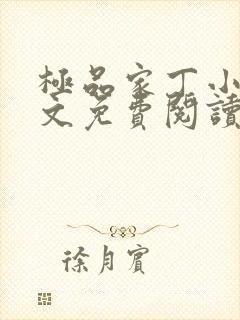 極品家丁小
文免費閱讀
徐月賓